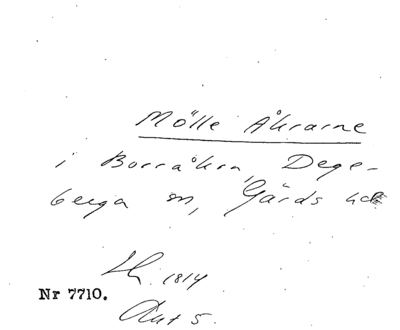 Mölle Åkrarne
i Borråkra, Dege-
berga sn, Gärds hd
1814
Nr 7710.
Akt 5.